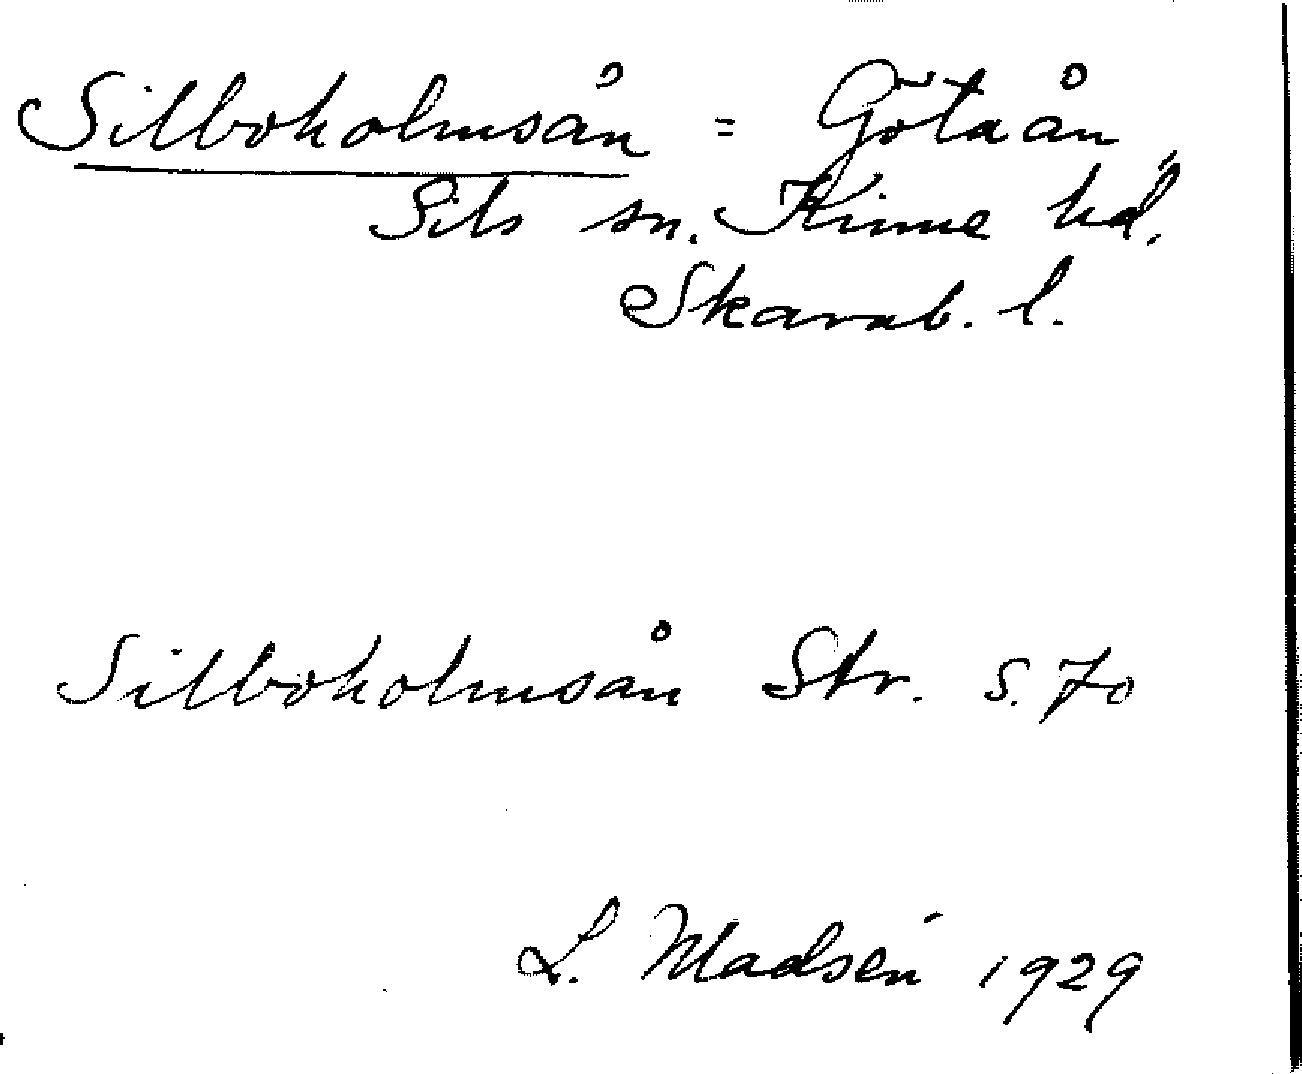 Silboholmsån = Götaån
Sils sn. Kinne hd.
Skarab. l.
Silboholmsån Str. S. 70
L. Madsén 1929